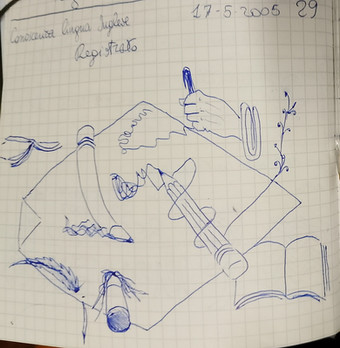 17-5-2005 29
Conoscenza Lingua Inglese
Registrato